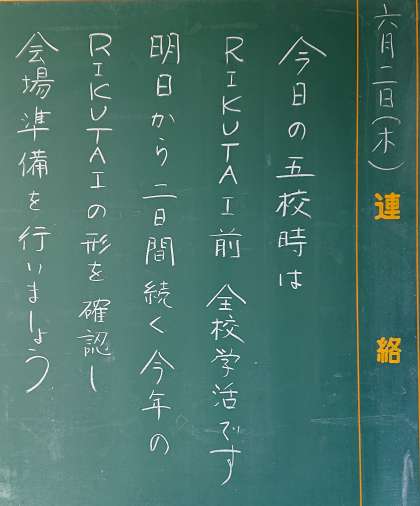 六月二日(木)
連絡
今日の五校時は
RIKUTAI前 全校学活です
明日から 二日間続く今年の
RIKUTAIの形を確認し
会場準備を行いましょう